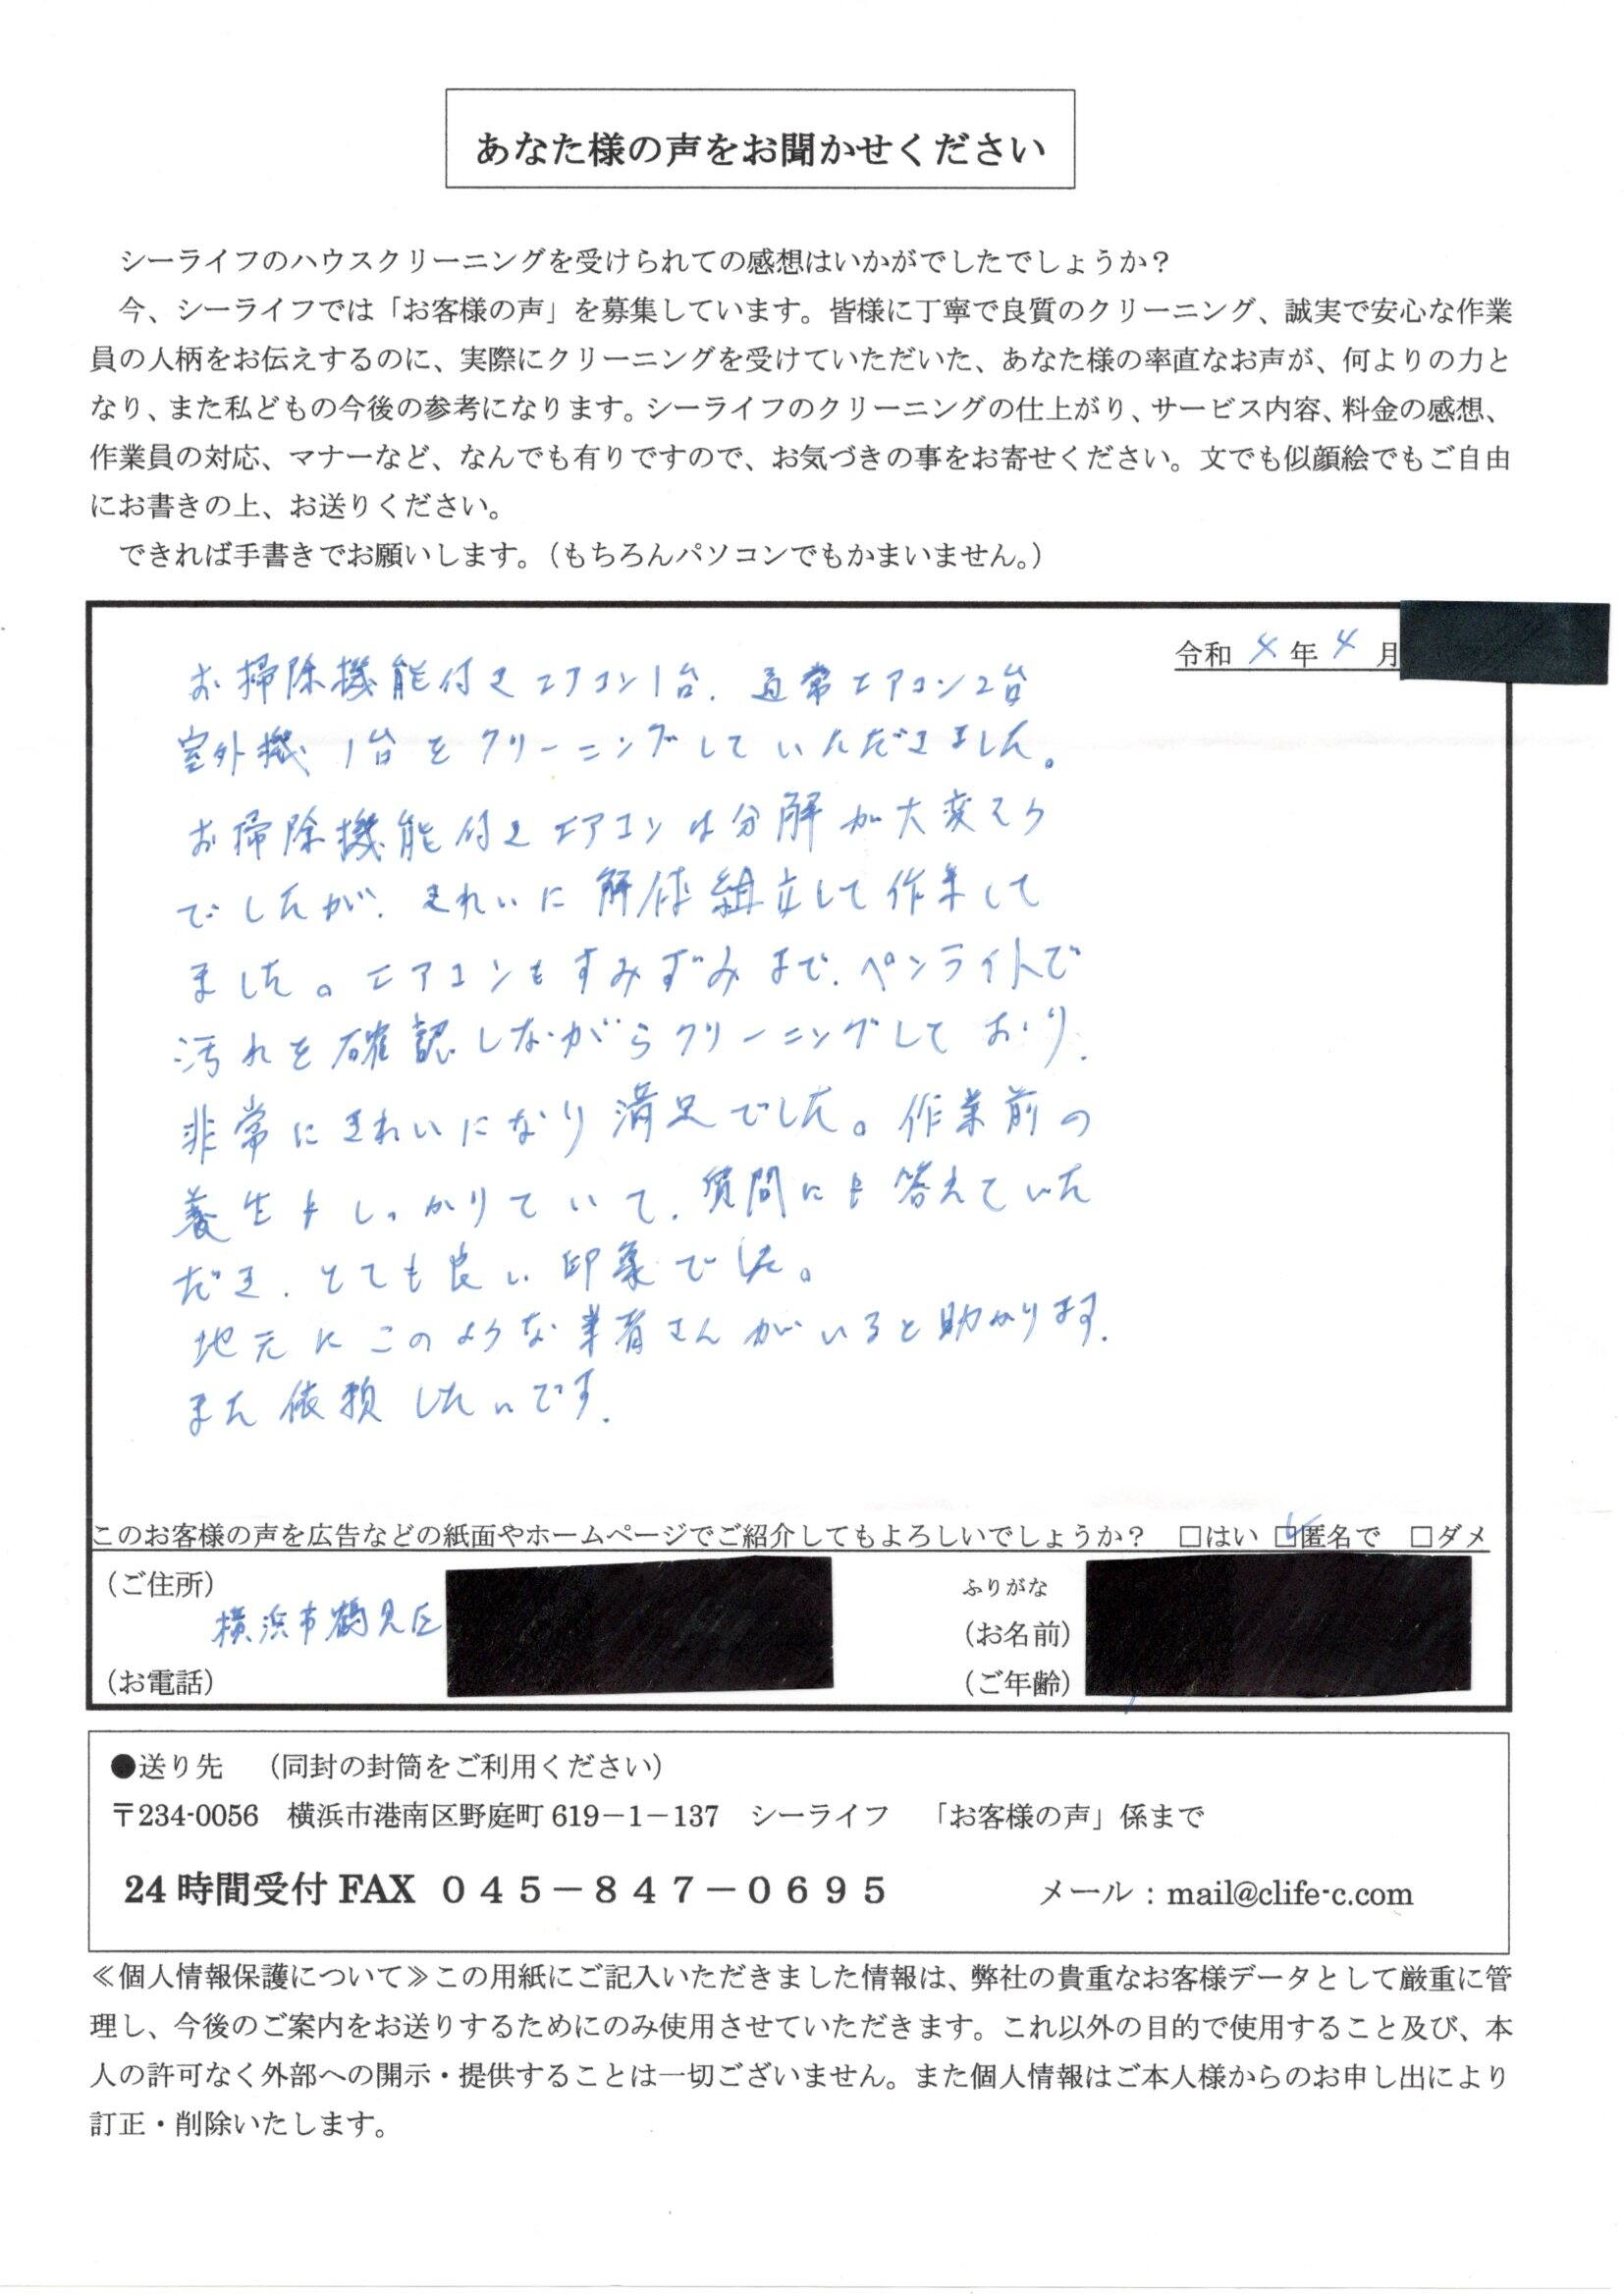 あなた様の声をお聞かせください
シーライフのハウスクリーニングを受けられての感想はいかがでしたでしょうか？
今、シーライフでは「お客様の声」を募集しています。皆様に丁寧で良質のクリーニング、誠実で安心な作業
員の人柄をお伝えするのに、実際にクリーニングを受けていただいた、あなた様の率直なお声が、何よりの力と
なり、また私どもの今後の参考になります。シーライフのクリーニングの仕上がり、サービス内容、料金の感想、
作業員の対応、マナーなど、なんでも有りですので、お気づきの事をお寄せください。文でも似顔絵でもご自由
にお書きの上、お送りください。
できれば手書きでお願いします。（もちろんパソコンでもかまいません。）
令和 4 年 4 月
お掃除機能付きエアコン1台、通常エアコン2台
室外機 1台をクリーニングしていただきました。
お掃除機能付きエアコンは分解が大変そう
でしたが、きれいに解体組立して作業して
ました。エアコンもすみずみまで、ペンライトで
汚れを確認しながらクリーニングしており、
非常にきれいになり満足でした。作業前の
養生もしっかりていて、質問にも答えていた
だき、とても良い印象でした。
地元にこのような業者さんがいると助かります。
また依頼したいです。
このお客様の声を広告などの紙面やホームページでご紹介してもよろしいでしょうか？ □はい □匿名で □ダメ
（ご住所） ふりがな
横浜市鶴見区 （お名前）
（お電話） （ご年齢）
●送り先 （同封の封筒をご利用ください）
〒234-0056 横浜市港南区野庭町 619－1－137 シーライフ 「お客様の声」係まで
24 時間受付 FAX ０４５－８４７－０６９５ メール：mail@clife-c.com
≪個人情報保護について≫この用紙にご記入いただきました情報は、弊社の貴重なお客様データとして厳重に管
理し、今後のご案内をお送りするためにのみ使用させていただきます。これ以外の目的で使用すること及び、本
人の許可なく外部への開示・提供することは一切ございません。また個人情報はご本人様からのお申し出により
訂正・削除いたします。